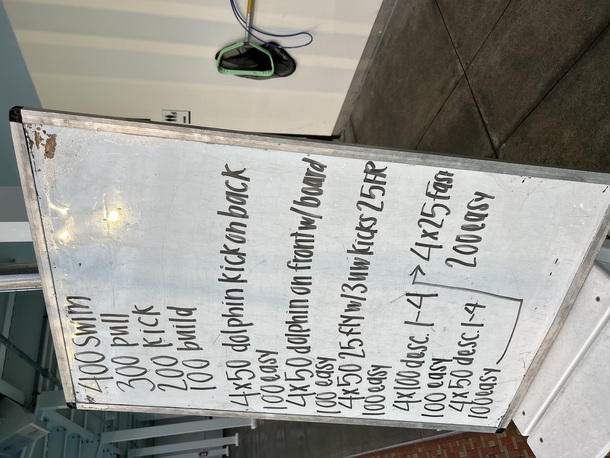 400 swim
300 pull
200 kick
100 build
4x50 dolphin kick on back
100 easy
4x50 dolphin on front w/ board
100 easy
4x50 25 fly w/ 3 uw kicks 25 FR
100 easy
4x100 desc. 1-4
100 easy
4x50 desc. 1-4
100 easy
→ 4x25 fast
200 easy